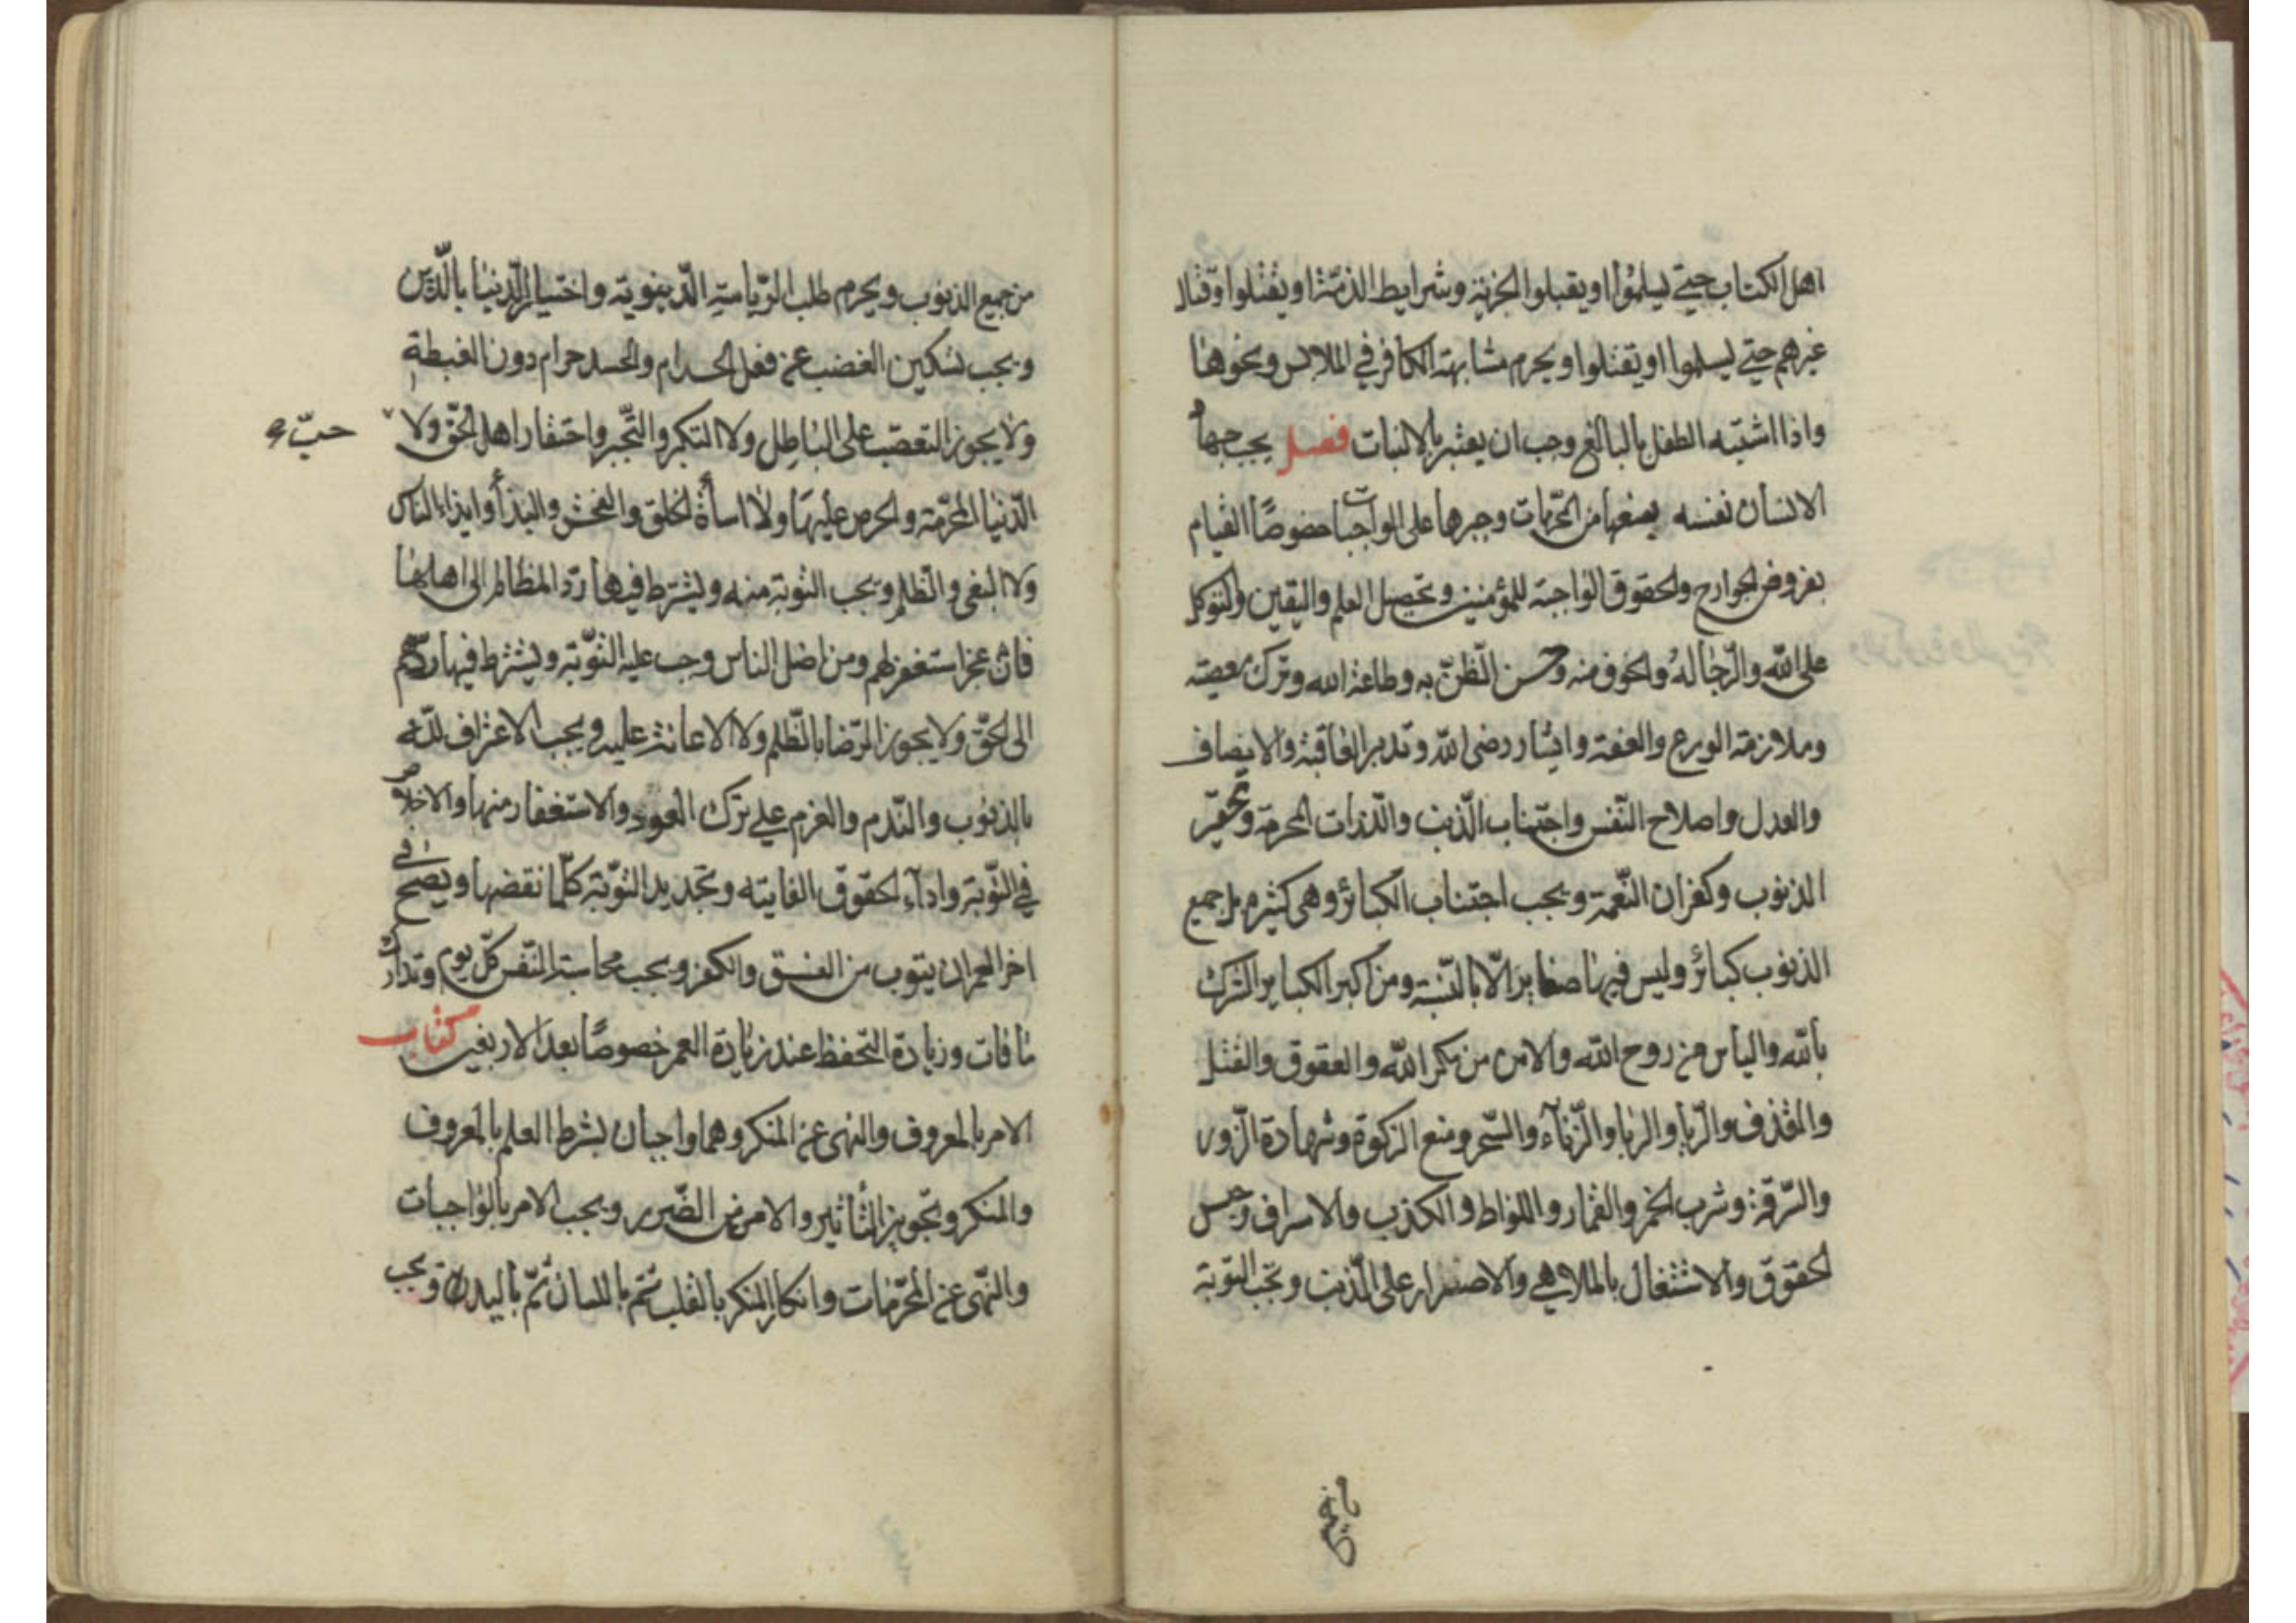 اهل الكتاب حتى يسلموا او يقبلوا الجزية وشرايط الذمة او يقتلوا وقتال
غيرهم حتى يسلموا او يقتلوا ويحرم مشابهة الكافر في الملابس ونحوها
واذا اشتبه الطفل بالبالغ وجب ان يعتبر بالانبات فصل يجب جهاد
الانسان نفسه بمنعها من المحرّمات وجبرها على الواجبات خصوصًا القيام
بفروض الجوارح والحقوق الواجبة للمؤمنين وتحصيل العلم واليقين والتوكل
على الله والرّجا له والخوف منه وحسن الظّنّ به وطاعة الله وترك معصيته
وملازمة الورع والعفة وايثار رضى الله وتدبر العاقبة والانصاف
والعدل واصلاح النّفس واجتناب الّذنب والّلذات المحرمة وتحقير
الذنوب وكفران النّعمة ويجب اجتناب الكبائر وهى كثيرة بل جميع
الذنوب كبائر وليس فيها صغاير الّا بالنّسبة ومن اكبر الكباير الشرك
بالله والياس من روح الله والامن من مكر الله والعقوق والقتل
والقذف والرّيا والربا والزّناء والسّحر ومنع الزكوة وشهادة الزّور
والسّرقة وشرب الخمر والقمار واللواط والكذب والاسراف وحبس
الحقوق والاشتغال بالملاهي والاصرار على الّذنب وتجب التوبة
من جميع الذنوب ويحرم طلب الرّياسة الدّنيوية واختيار الدّنيا بالّدين
ويجب تسكين الغضب عن فعل الحرام والحسد حرام دون الغبطة
ولا يجوز التعصّب على الباطل ولا التكبر والتّجبر واحتقار اهل الحقّ ولا
حبّ
الّدنيا المحرّمة والحرص عليها ولا اساءة الخلق والفحش والبذاء وايذاء الناس
ولا البغى والظّلم وتجب التوبة منه ويشترط فيها ردّ المظالم الى اهلها
فان عجز استغفر لهم ومن اضل الناس وجب عليه التّوبة ويشترط فيها ردّهم
الى الحقّ ولا يجوز الرّضا بالظّلم ولا الاعانة عليه ويجب الاعتراف لله
بالذنوب والنّدم والعزم على ترك العود والاستغفار منها والاخلاص
في التّوبة واداء الحقوق الفايتة وتجديد التّوبة كلّما نقضها ويصح في
اخر العمر ان يتوب من الفسق والكفر ويجب محاسبة النّفس كلّ يوم وتدارك
ما فات وزيادة التحفظ عند زيادة العمر خصوصًا بعد الاربعين كتاب
الامر بالمعروف والنهى عن المنكر وهما واجبان بشرط العلم بالمعروف
والمنكر وتجويز التأثير والامن من الضّرر ويجب الامر بالواجبات
والنّهى عن المحرّمات وانكار المنكر بالقلب ثم باللسان ثمّ باليد ويجب